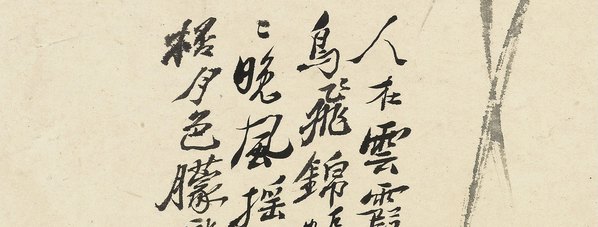 人在雲霞
鳥飛錦
〻晚風搖
夕色朦